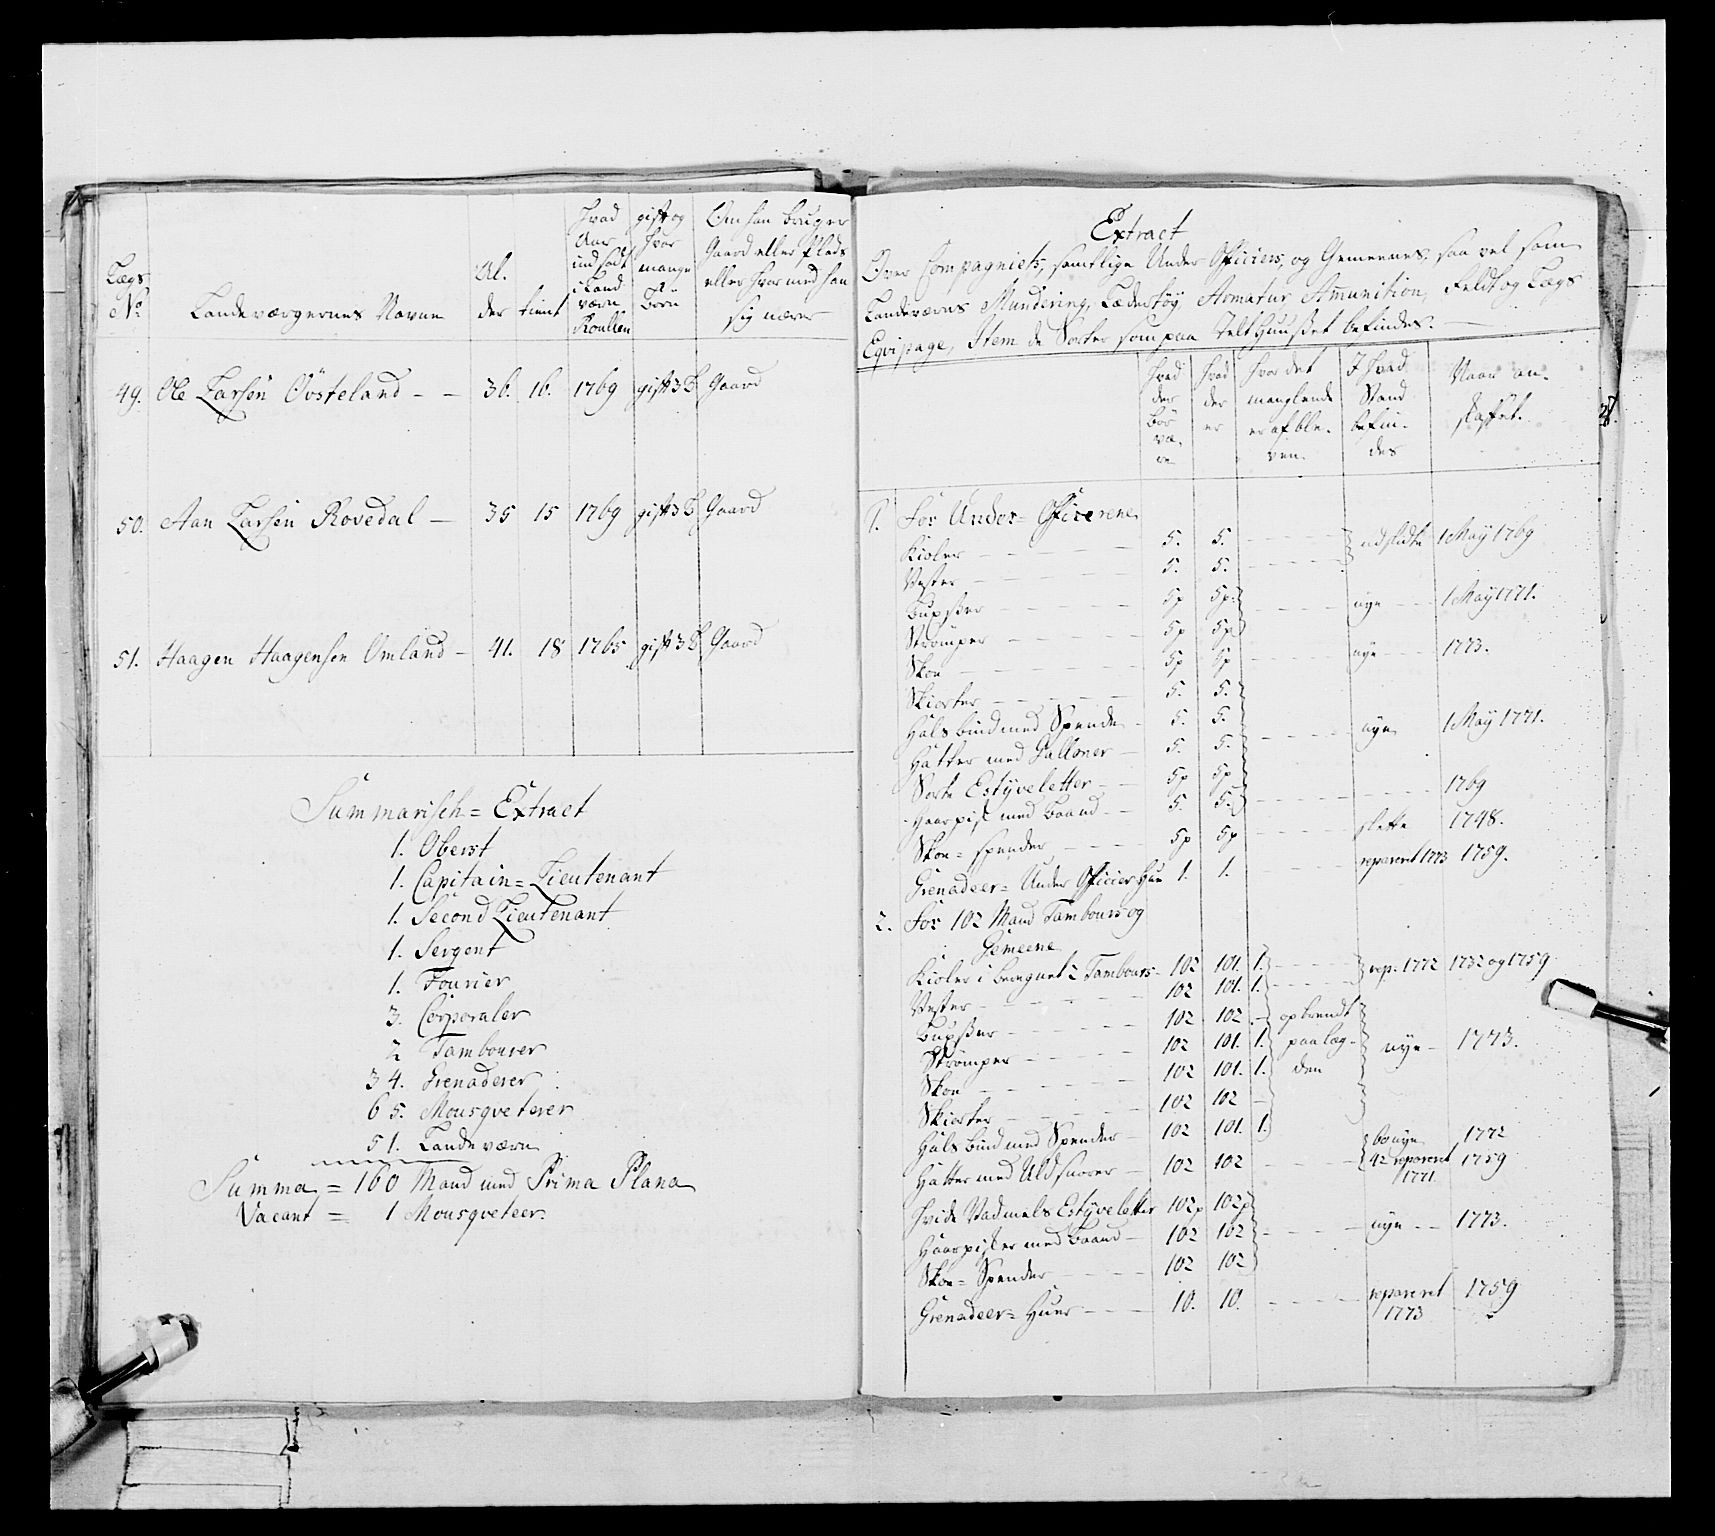 Lægs
No
Landeværgernes Navne
Al-
der
tient
Hvad
Aar
indsadt
i Land
værn
Roullen
gift og
hvor
mange
Börn
Om han bruger
Gaard eller Plads
eller hvormed han
sig nærer
49. Ole Larsen Övsteland - - 36. 16. 1769 gift 3 B Gaard
50. Aan Larsen Rovedal - 35 15 1769 gift 3 B Gaard
51. Haagen Haagensen Omland - 41. 18 1765 gift 3 B Gaard
Summarisch = Extract
1. Oberst
1. Capitain = Lieutenant
1. Second Lieutenant
1. Sergent
1. Fourier
3. Corporaler
2 Tambourer
34. Grenaderer
65. Mousqveterer
51. Landeværn
Summa = 160 Mand med Prima Plana
Vacant = 1 Mousqveteer.
Extract
Over Compagniets, samtlige Under Officiers, og Gemeenes, saa vel som
Landeværns Mundering, Lædertöy, Armatur Amunition, Feldt og Lægs
Eqvipage, Item de Sorter som paa Telt Huuset befindes.
Hvad
der
bör
væ-
re
Hvad
der
er
Hvor det
manglende
er afble-
ven
I hvad
Stand
befin-
des
Naar an-
skaffet.
28.
1. For Under = Officerene
Kioler - - - 5. 5. - - - udslidte 1 May 1769
Vester - - - 5. 5. - - -
Buxser - - - 5p 5p. - - - nye - - 1 May 1771.
Strömper - - - 5p 5p
Skoe - - - 5p 5p - - - nye - - 1773.
Skiorter - - - 5. 5.
Halsbind med Spende - 5. 5. - - - nye 1 May 1771.
Hatter med Galloner - 5. 5.
Sorte Estyveletter - - 5p 5p - - - 1769
Haarpisk med Baand - - 5. 5.
Skoe = spender - - - 5p 5p - - - slette 1748.
Grenadeer = Under Officier Hue 1. 1. - - reparert 1773 1759.
2. For 102 Mand Tambours og
Gemeene
Kioler i beregnet 2 Tambours - 102 101. 1. - - - rep: 1772 1732 og 1759
Vester - - - 102 101. 1. - - -
Buxser - - - 102 102 . - opbrendt
Strömper - - - 102 101. 1. paa læg- nye - 1773.
Skoe - - - 102 101. 1. den
Skiorter - - - 102 102 -
Halsbind med Spender - 102 101. 1. 60 nye 1772
Hatter med Uldsnorer - 102 102 - - - 42 reparert 1759
1771.
Hvide Vadmels Estyveletter 102p 102p
Haarpisker med Baand - 102 102 - - - nye - - 1773.
Skoe = Spender - - - 102 102
Grenadeer = Huer - - - 10. 10. - - - repareret 1759
1773